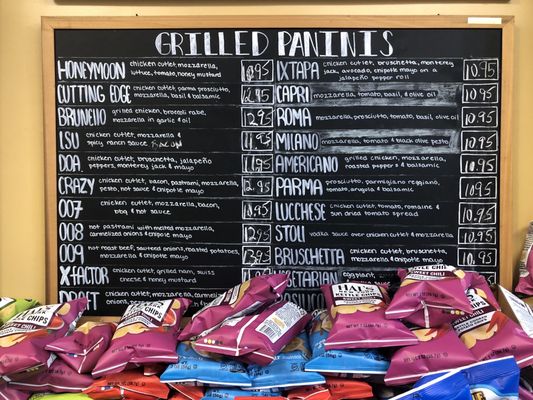 GRILLED PANINIS
HONEYMOON chicken cutlet, mozzarella, lettuce, tomato, honey mustard 10.95
CUTTING EDGE chicken cutlet, parma prosciutto, mozzarella, basil & balsamic 12.95
BRUNELLO grilled chicken, broccoli rabe, mozzarella in garlic & oil 12.95
ISU chicken cutlet, mozzarella & spicy ranch sauce 11.95
DOA chicken cutlet, bruschetta, jalapeño peppers, monterey jack & mayo 11.95
CRAZY chicken cutlet, bacon, pastrami, mozzarella, pesto, hot sauce & chipotle mayo 12.95
007 chicken cutlet, mozzarella, bacon, bbq & hot sauce 10.95
008 hot pastrami with melted mozzarella, carmelized onions & chipotle mayo 12.95
009 hot roast beef, sauteed onions, roasted potatoes, mozzarella & chipotle mayo 13.95
X-FACTOR chicken cutlet, grilled ham, swiss cheese & honey mustard 12.95
DRAFT chicken cutlet, mozzarella, carmelized
IXTAPA chicken cutlet, bruschetta, monterey jack, avocado, chipotle mayo on a jalapeño pepper roll 10.95
CAPRI mozzarella, tomato, basil, & olive oil 10.95
ROMA prosciutto, mozzarella, tomato, basil & olive oil 10.95
MILANO mozzarella, tomato & black olive pesto 10.95
AMERICANO grilled chicken, mozzarella, roasted peppers & balsamic 10.95
PARMA prosciutto, parmigiano reggiano, tomato, arugula & balsamic 10.95
LUCCHESE chicken cutlet, tomato, romaine & sun dried tomato spread 10.95
STOLI vodka sauce over chicken cutlet & mozzarella 10.95
BRUSCHETTA chicken cutlet, bruschetta, mozzarella & chipotle mayo 10.95
VEGETARIAN eggplant,
HAL'S